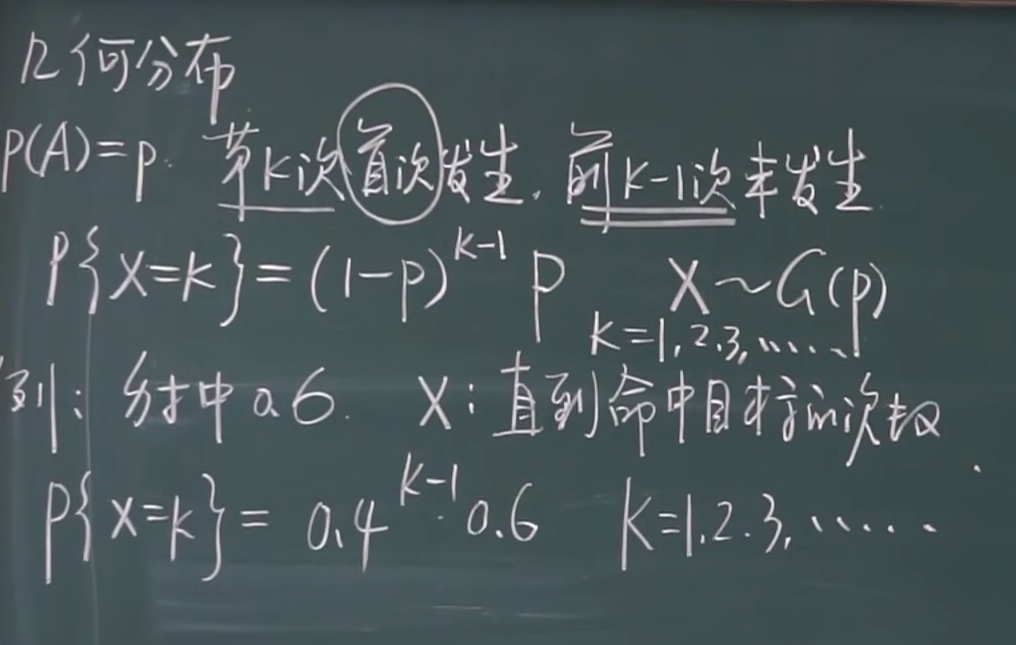 几何分布
P(A)=p. 第K次首次发生, 前K-1次未发生.
P{X=k}=(1-p)^{K-1} P X~G(p)
K=1,2,3,……
例: 射中0.6. X: 直到命中目标的次数.
P{X=k}= 0.4^{K-1}·0.6 K=1,2,3,……